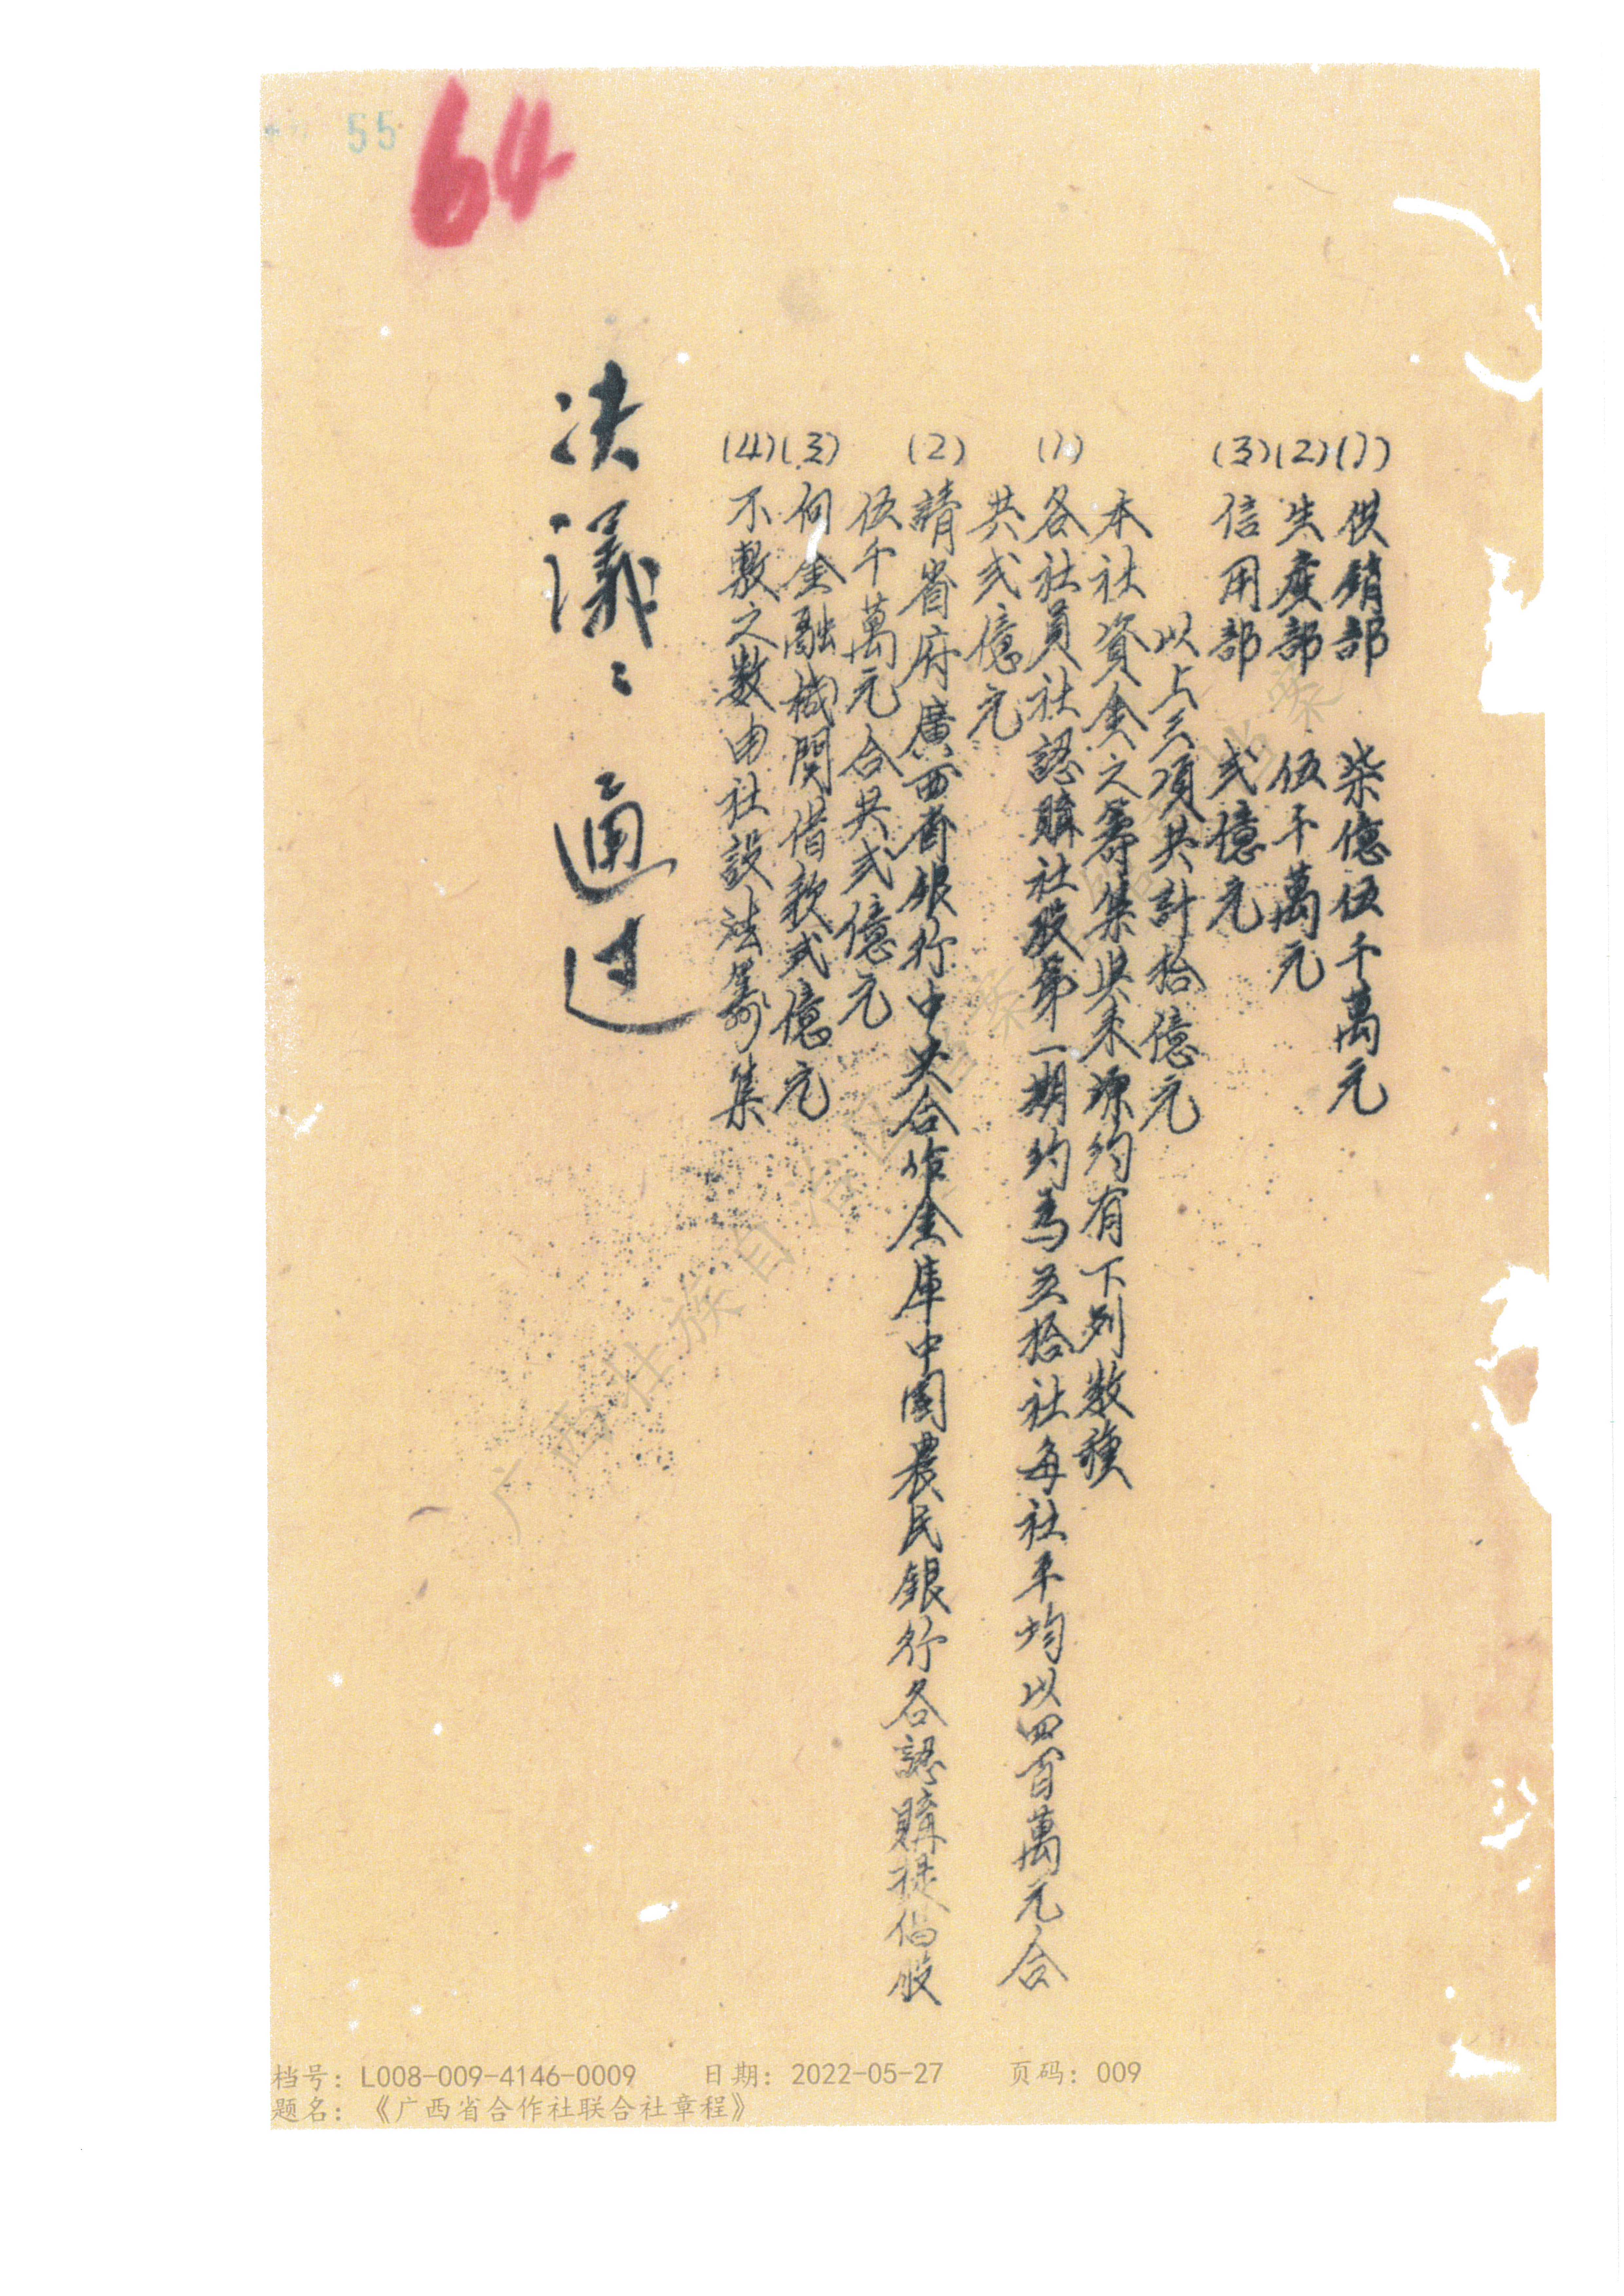 55
64
(1)供銷部 柒億伍千萬元
(2)生産部 伍千萬元
(3)信用部 弍億元
以上三項共計拾億元
本社資金之籌集與來源約有下列數種
(1)各社員社認購社股第一期約為五拾社每社平均以四百萬元合
共弍億元
(2)請省府廣西省銀行中央合作金庫中國農民銀行各認購提倡股
伍千萬元合共弍億元
(3)向金融機関借款弍億元
(4)不敷之數由社設法籌集
決議：通过
档号：L008-009-4146-0009 日期：2022-05-27 页码：009
题名：《广西省合作社联合社章程》